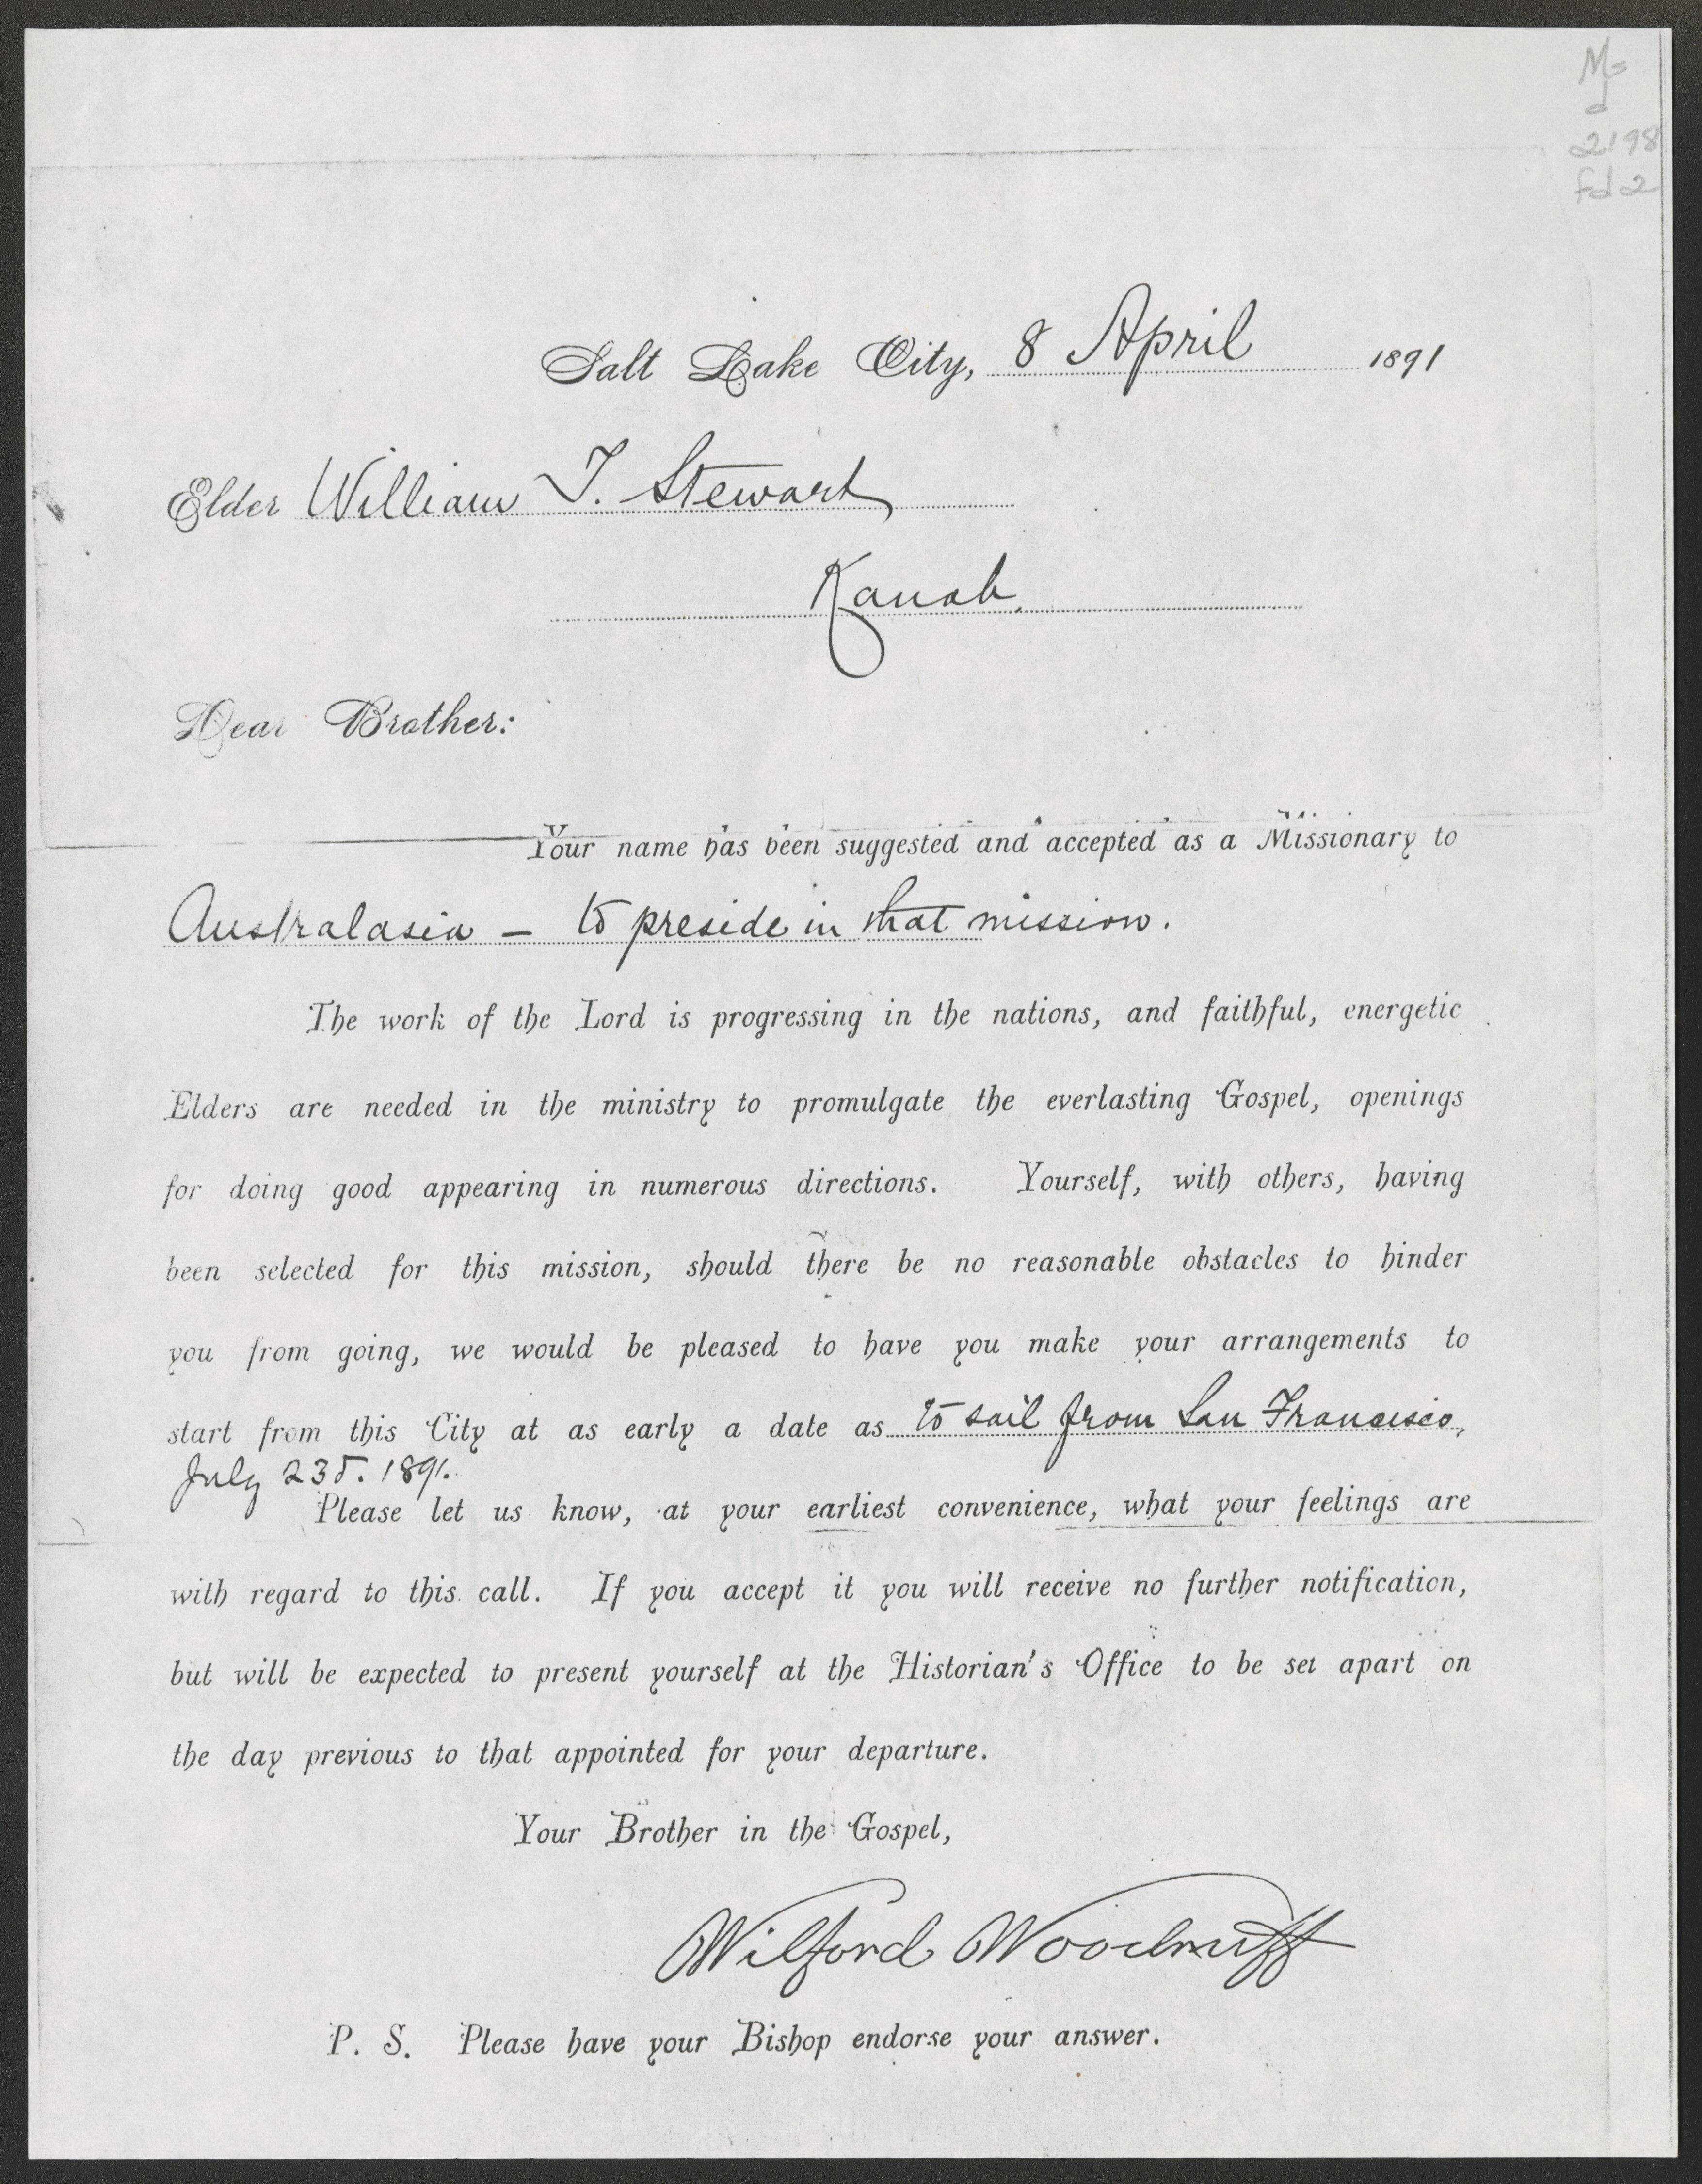 Ms
d
2198
fd 2
Salt Lake City, 8 April 1891
Elder William T. Stewart
Kanab.
Dear Brother:
Your name has been suggested and accepted as a Missionary to
Australasia - to preside in that mission.
The work of the Lord is progressing in the nations, and faithful, energetic
Elders are needed in the ministry to promulgate the everlasting Gospel, openings
for doing good appearing in numerous directions. Yourself, with others, having
been selected for this mission, should there be no reasonable obstacles to hinder
you from going, we would be pleased to have you make your arrangements to
start from this City at as early a date as to sail from San Francisco,
July 23d. 1891.
Please let us know, at your earliest convenience, what your feelings are
with regard to this call. If you accept it you will receive no further notification,
but will be expected to present yourself at the Historian's Office to be set apart on
the day previous to that appointed for your departure.
Your Brother in the Gospel,
Wilford Woodruff
P. S. Please have your Bishop endorse your answer.